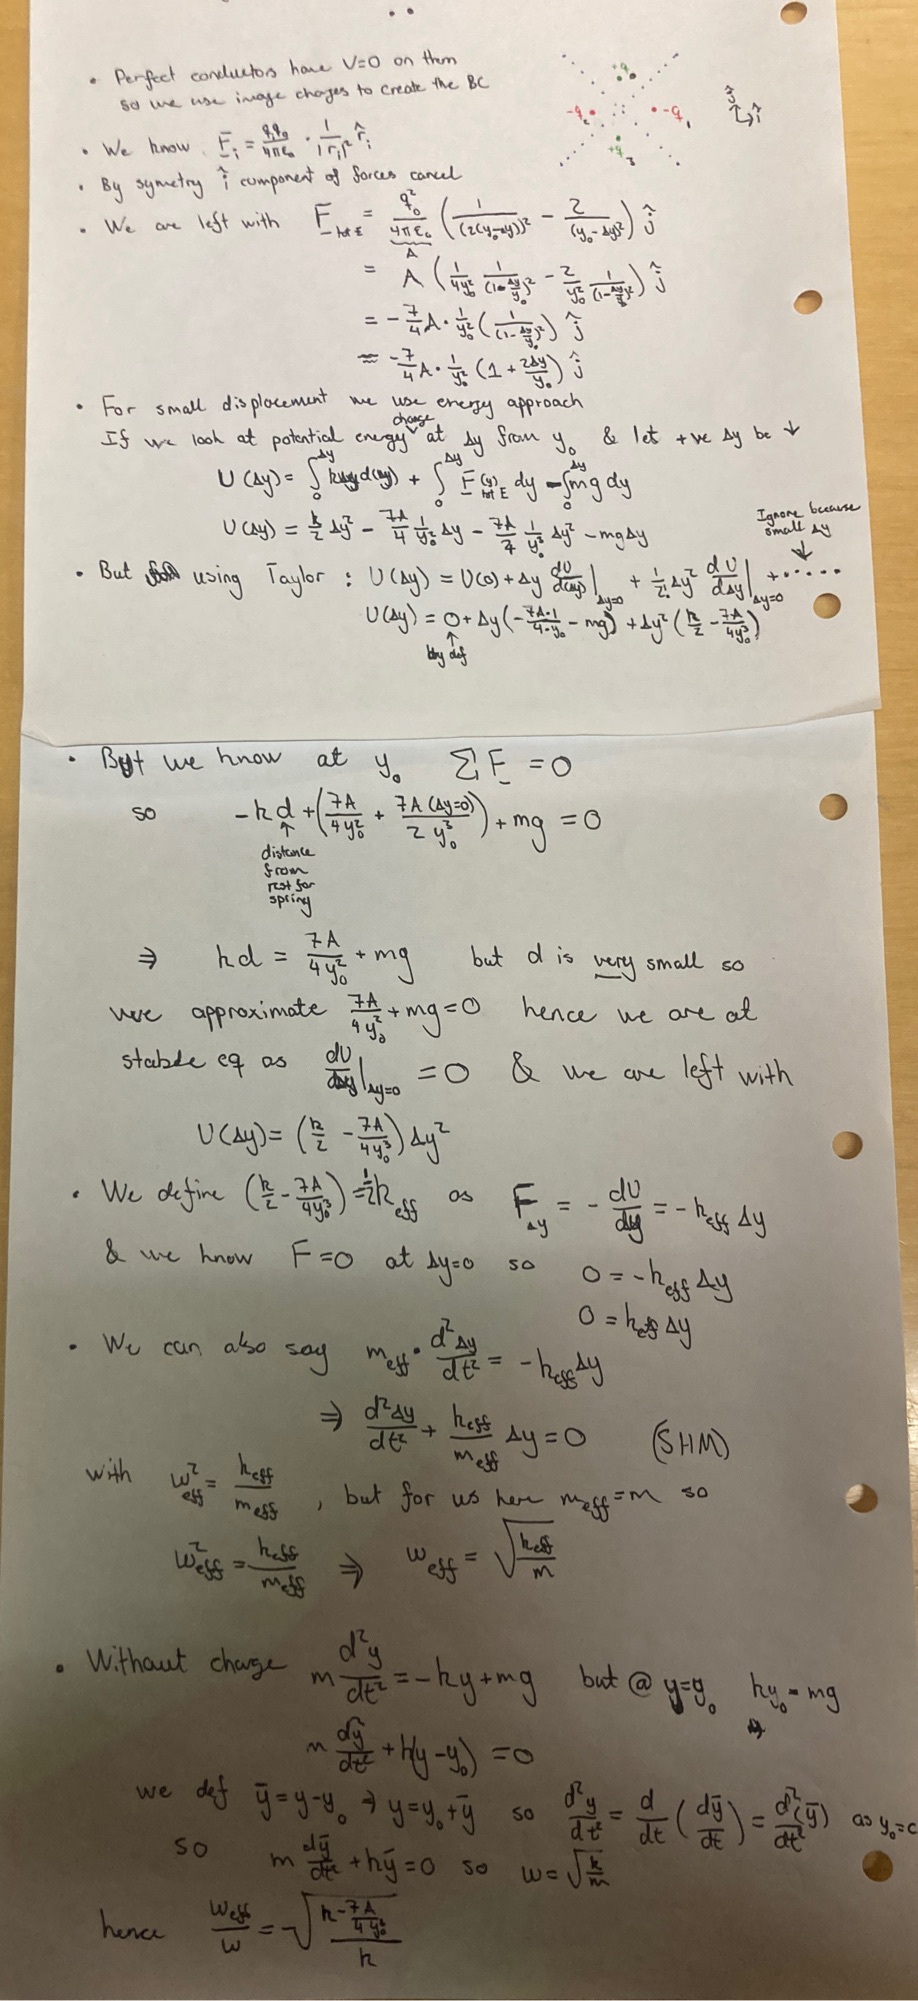 • Perfect conductors have V=0 on them
so we use image charges to create the BC
+q
-q
-q₁
+q₃
ĵ
î
• We know F_i = q_i q_0/4πε₀ · 1/|r_i|² r̂_i
• By symmetry î component of forces cancel
• We are left with F_tot E = q_0²/4πε₀ (1/(2(y₀-Δy))² - 2/(y₀-Δy)²) ĵ
A
= A (1/4y₀² 1/(1-Δy/y₀)² - 2/y₀² 1/(1-Δy/y₀)²) ĵ
= -7/4 A · 1/y₀² (1/(1-Δy/y₀)²) ĵ
≈ -7/4 A · 1/y₀² (1 + 2Δy/y₀) ĵ
• For small displacement we use energy approach
If we look at potential energy change at Δy from y₀ & let +ve Δy be ↓
U(Δy) = ∫₀^Δy kΔy d(Δy) + ∫₀^Δy F(y)_tot E dy - ∫₀^Δy mg dy
U(Δy) = k/2 Δy² - 7A/4 1/y₀² Δy - 7A/4 1/y₀³ Δy² - mgΔy
Ignore because
small Δy
• But using Taylor : U(Δy) = U(0) + Δy dU/d(Δy)|_Δy=0 + 1/2! Δy² dU/dΔy|_Δy=0 + .....
U(Δy) = 0 + Δy(-7A·1/4·y₀ - mg) + Δy² (k/2 - 7A/4y₀³)
by def
• But we know at y₀ ΣF = 0
so -kd + (7A/4y₀² + 7A(Δy=0)/2y₀³) + mg = 0
distance
from
rest for
spring
⇒ kd = 7A/4y₀² + mg but d is very small so
we approximate 7A/4y₀² + mg = 0 hence we are at
stable eq as dU/dΔy|_Δy=0 = 0 & we are left with
U(Δy) = (k/2 - 7A/4y₀³) Δy²
• We define (k/2 - 7A/4y₀³) = ½k_eff as F_Δy = -dU/dy = -k_eff Δy
& we know F=0 at Δy=0 so 0 = -k_eff Δy
0 = k_eff Δy
• We can also say m_eff · d²Δy/dt² = -k_eff Δy
⇒ d²Δy/dt² + k_eff/m_eff Δy = 0 (SHM)
with ω²_eff = k_eff/m_eff , but for us here m_eff = m so
ω²_eff = k_eff/m_eff ⇒ ω_eff = √(k_eff/m)
• Without charge m d²y/dt² = -ky + mg but @ y=y₀ ky₀ = mg
m d²y/dt² + k(y-y₀) = 0
we def ȳ = y-y₀ ⇒ y = y₀+ȳ so d²y/dt² = d/dt (dȳ/dt) = d²(ȳ)/dt² as y₀=c
so m d²ȳ/dt² + kȳ = 0 so ω = √(k/m)
hence ω_eff/ω = √((k - 7A/4y₀³)/k)